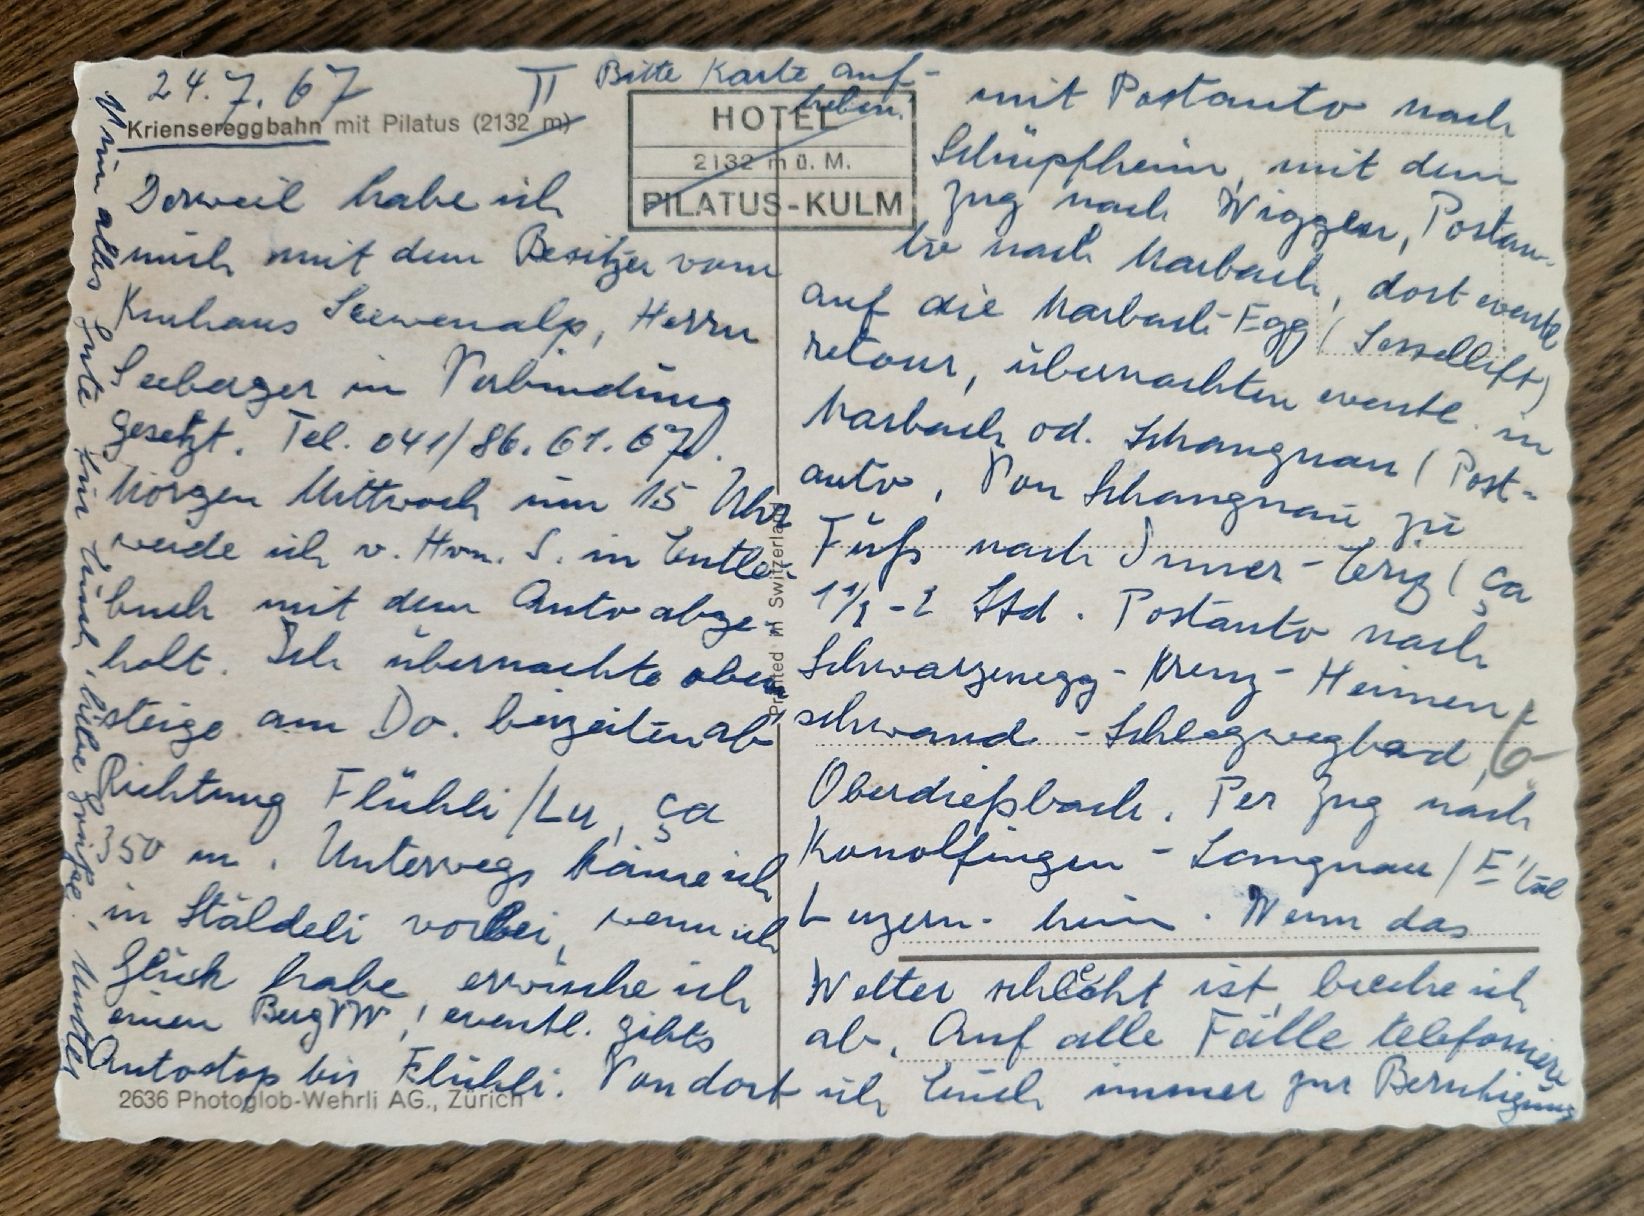 24.7.67 II Bitte Karte auf-
heben!
Kriensereggbahn mit Pilatus (2132 m)
HOTEL
2132 m ü. M.
PILATUS-KULM
Derweil habe ich
mich mit dem Besitzer vom
Kurhaus Seewenalp, Herrn
Seeberger in Verbindung
gesetzt. Tel. 041/86.61.67.
Morgen Mittwoch um 15 Uhr
werde ich v. Hrn. S. in Entle-
buch mit dem Auto abge-
holt. Ich übernachte oben
steige am Do. beizeiten ab
Richtung Flühli/Lu, ca
350 m. Unterwegs käme ich
in Stäldeli vorbei, wenn ich
Glück habe, erwische ich
einen Berg VW, eventl. gibts
Autostop bis Flühli. Von dort
2636 Photoglob-Wehrli AG., Zürich
Printed in Switzerland
mit Postauto nach
Schüpfheim, mit dem
Zug nach Wiggen, Postau-
to nach Marbach, dort eventl
auf die Marbach-Egg (Sessellift)
retour, übernachten eventl. in
Marbach od. Schangnau (Post-
auto, Von Schangnau zu
Fuß nach Inner-Eriz (ca
1½-2 Std. Postauto nach
Schwarzenegg-Kreuz-Heimen-
schwand-Schlegwegbad,
Oberdießbach. Per Zug nach
Konolfingen-Langnau/E'tal
Luzern-heim. Wenn das
Wetter schlecht ist, breche ich
ab. Auf alle Fälle telefoniere
ich Euch immer zur Beruhigung
6
alles Gute für Euch, liebe Grüße,